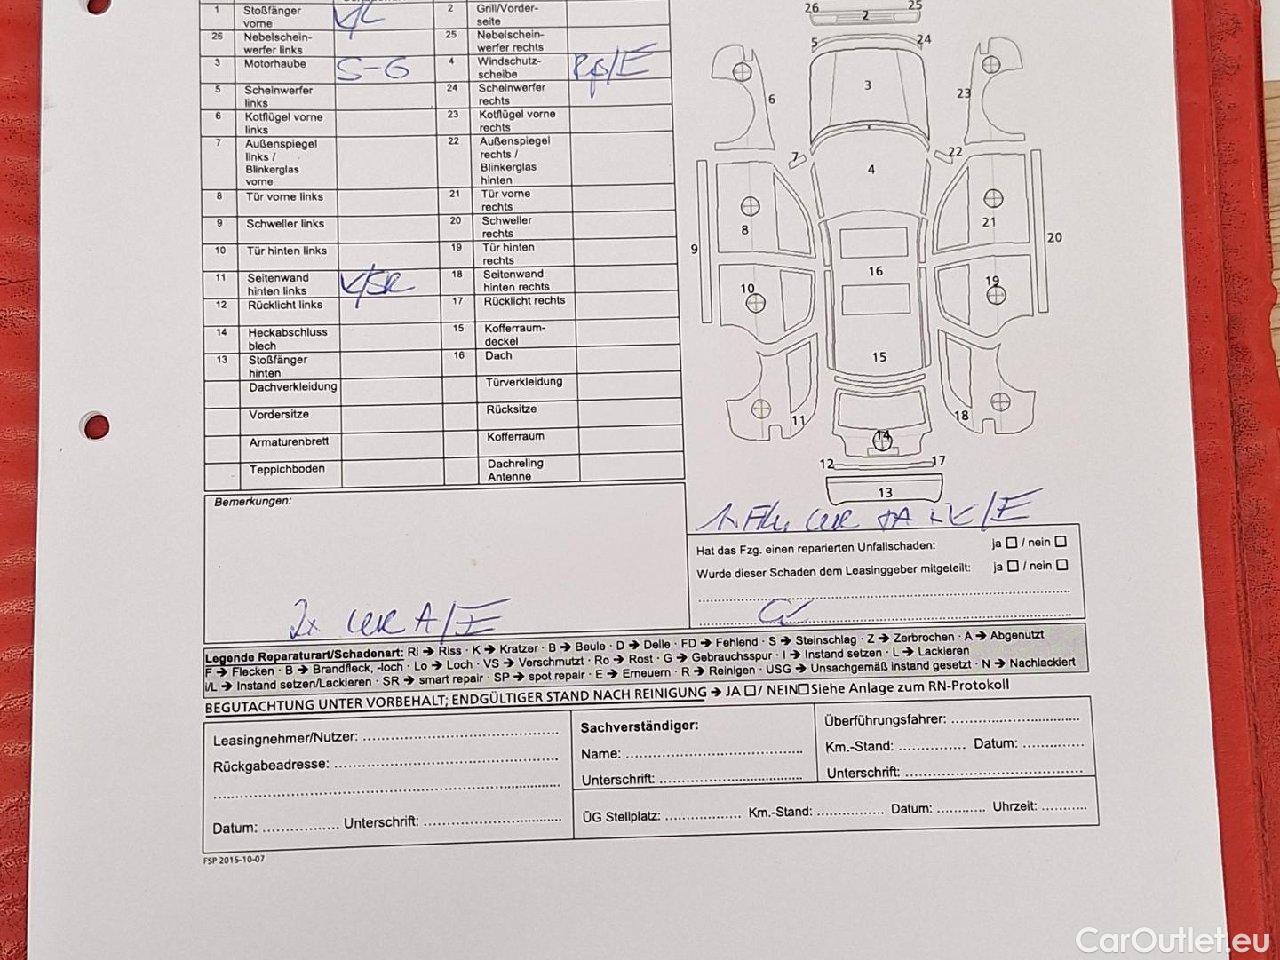 1 Stoßfänger vorne 2 Grill/Vorderseite
26 Nebelscheinwerfer links 25 Nebelscheinwerfer rechts
3 Motorhaube S-G 4 Windschutzscheibe
5 Scheinwerfer links 24 Scheinwerfer rechts
6 Kotflügel vorne links 23 Kotflügel vorne rechts
7 Außenspiegel links / Blinkerglas vorne 22 Außenspiegel rechts / Blinkerglas hinten
8 Tür vorne links 21 Tür vorne rechts
9 Schweller links 20 Schweller rechts
10 Tür hinten links 19 Tür hinten rechts
11 Seitenwand hinten links K/SR 18 Seitenwand hinten rechts
12 Rücklicht links 17 Rücklicht rechts
14 Heckabschluss blech 15 Kofferraumdeckel
13 Stoßfänger hinten 16 Dach
Dachverkleidung Türverkleidung
Vordersitze Rücksitze
Armaturenbrett Kofferraum
Teppichboden Dachreling Antenne
26 2 25
5 24
3
6 23
7 22
4
8 21
9 20
16
10 19
15
11 18
14
12 17
13
Bemerkungen:
Hat das Fzg. einen reparierten Unfallschaden: ja / nein
Wurde dieser Schaden dem Leasinggeber mitgeteilt: ja / nein
2x A/E
Legende Reparaturart/Schadenart: Ri → Riss · K → Kratzer · B → Beule · D → Delle · FD → Fehlend · S → Steinschlag · Z → Zerbrochen · A → Abgenutzt
F → Flecken · B → Brandfleck, -loch · Lo → Loch · VS → Verschmutzt · Ro → Rost · G → Gebrauchsspur · I → Instand setzen · L → Lackieren
I/L → Instand setzen/Lackieren · SR → smart repair · SP → spot repair · E → Erneuern · R → Reinigen · USG → Unsachgemäß instand gesetzt · N → Nachlackiert
BEGUTACHTUNG UNTER VORBEHALT; ENDGÜLTIGER STAND NACH REINIGUNG → JA / NEIN Siehe Anlage zum RN-Protokoll
Leasingnehmer/Nutzer:
Rückgabeadresse:
Datum: Unterschrift:
Sachverständiger:
Name:
Unterschrift:
Überführungsfahrer:
Km.-Stand: Datum:
Unterschrift:
ÜG Stellplatz: Km.-Stand: Datum: Uhrzeit:
FSP 2015-10-07
CarOutlet.eu